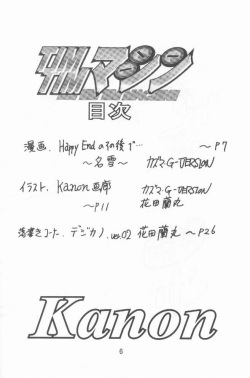 マシン
目次
漫画. Happy Endのその後で… ～P7
～名雪～ カズマ・G-VERSION
イラスト. Kanon画廊 カズマ・G-VERSION
～P11 花田蘭丸
落書きコーナー. デジカノ. ver.02 花田蘭丸 ～P26
Kanon
6